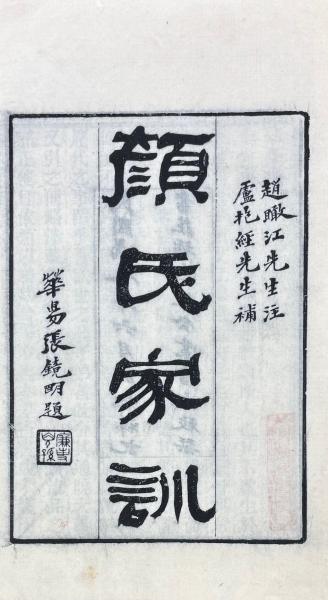 趙瞰江先生注
盧抱經先生補
顏氏家訓
華昜張鏡明題